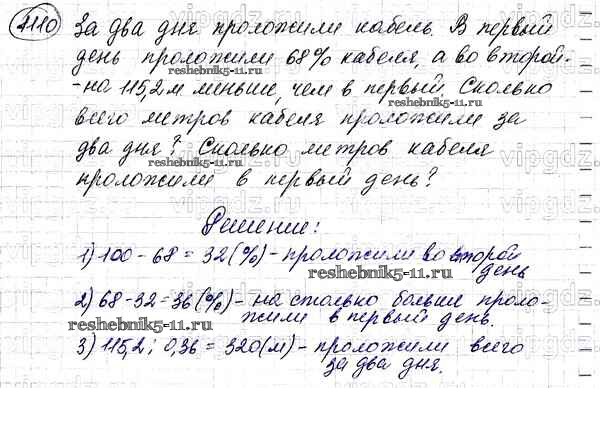 1110 За два дня проложили кабель. В первый
день проложили 68% кабеля, а во второй -
- на 115,2 м меньше, чем в первый. Сколько
всего метров кабеля проложили за
два дня? Сколько метров кабеля
проложили в первый день?
Решение:
1) 100 - 68 = 32 (%) - проложили во второй
день
2) 68 - 32 = 36 (%) - на столько больше проло-
жили в первый день.
3) 115,2 : 0,36 = 320 (м) - проложили всего
за два дня.
reshebnik5-11.ru
reshebnik5-11.ru
reshebnik5-11.ru
reshebnik5-11.ru
reshebnik5-11.ru